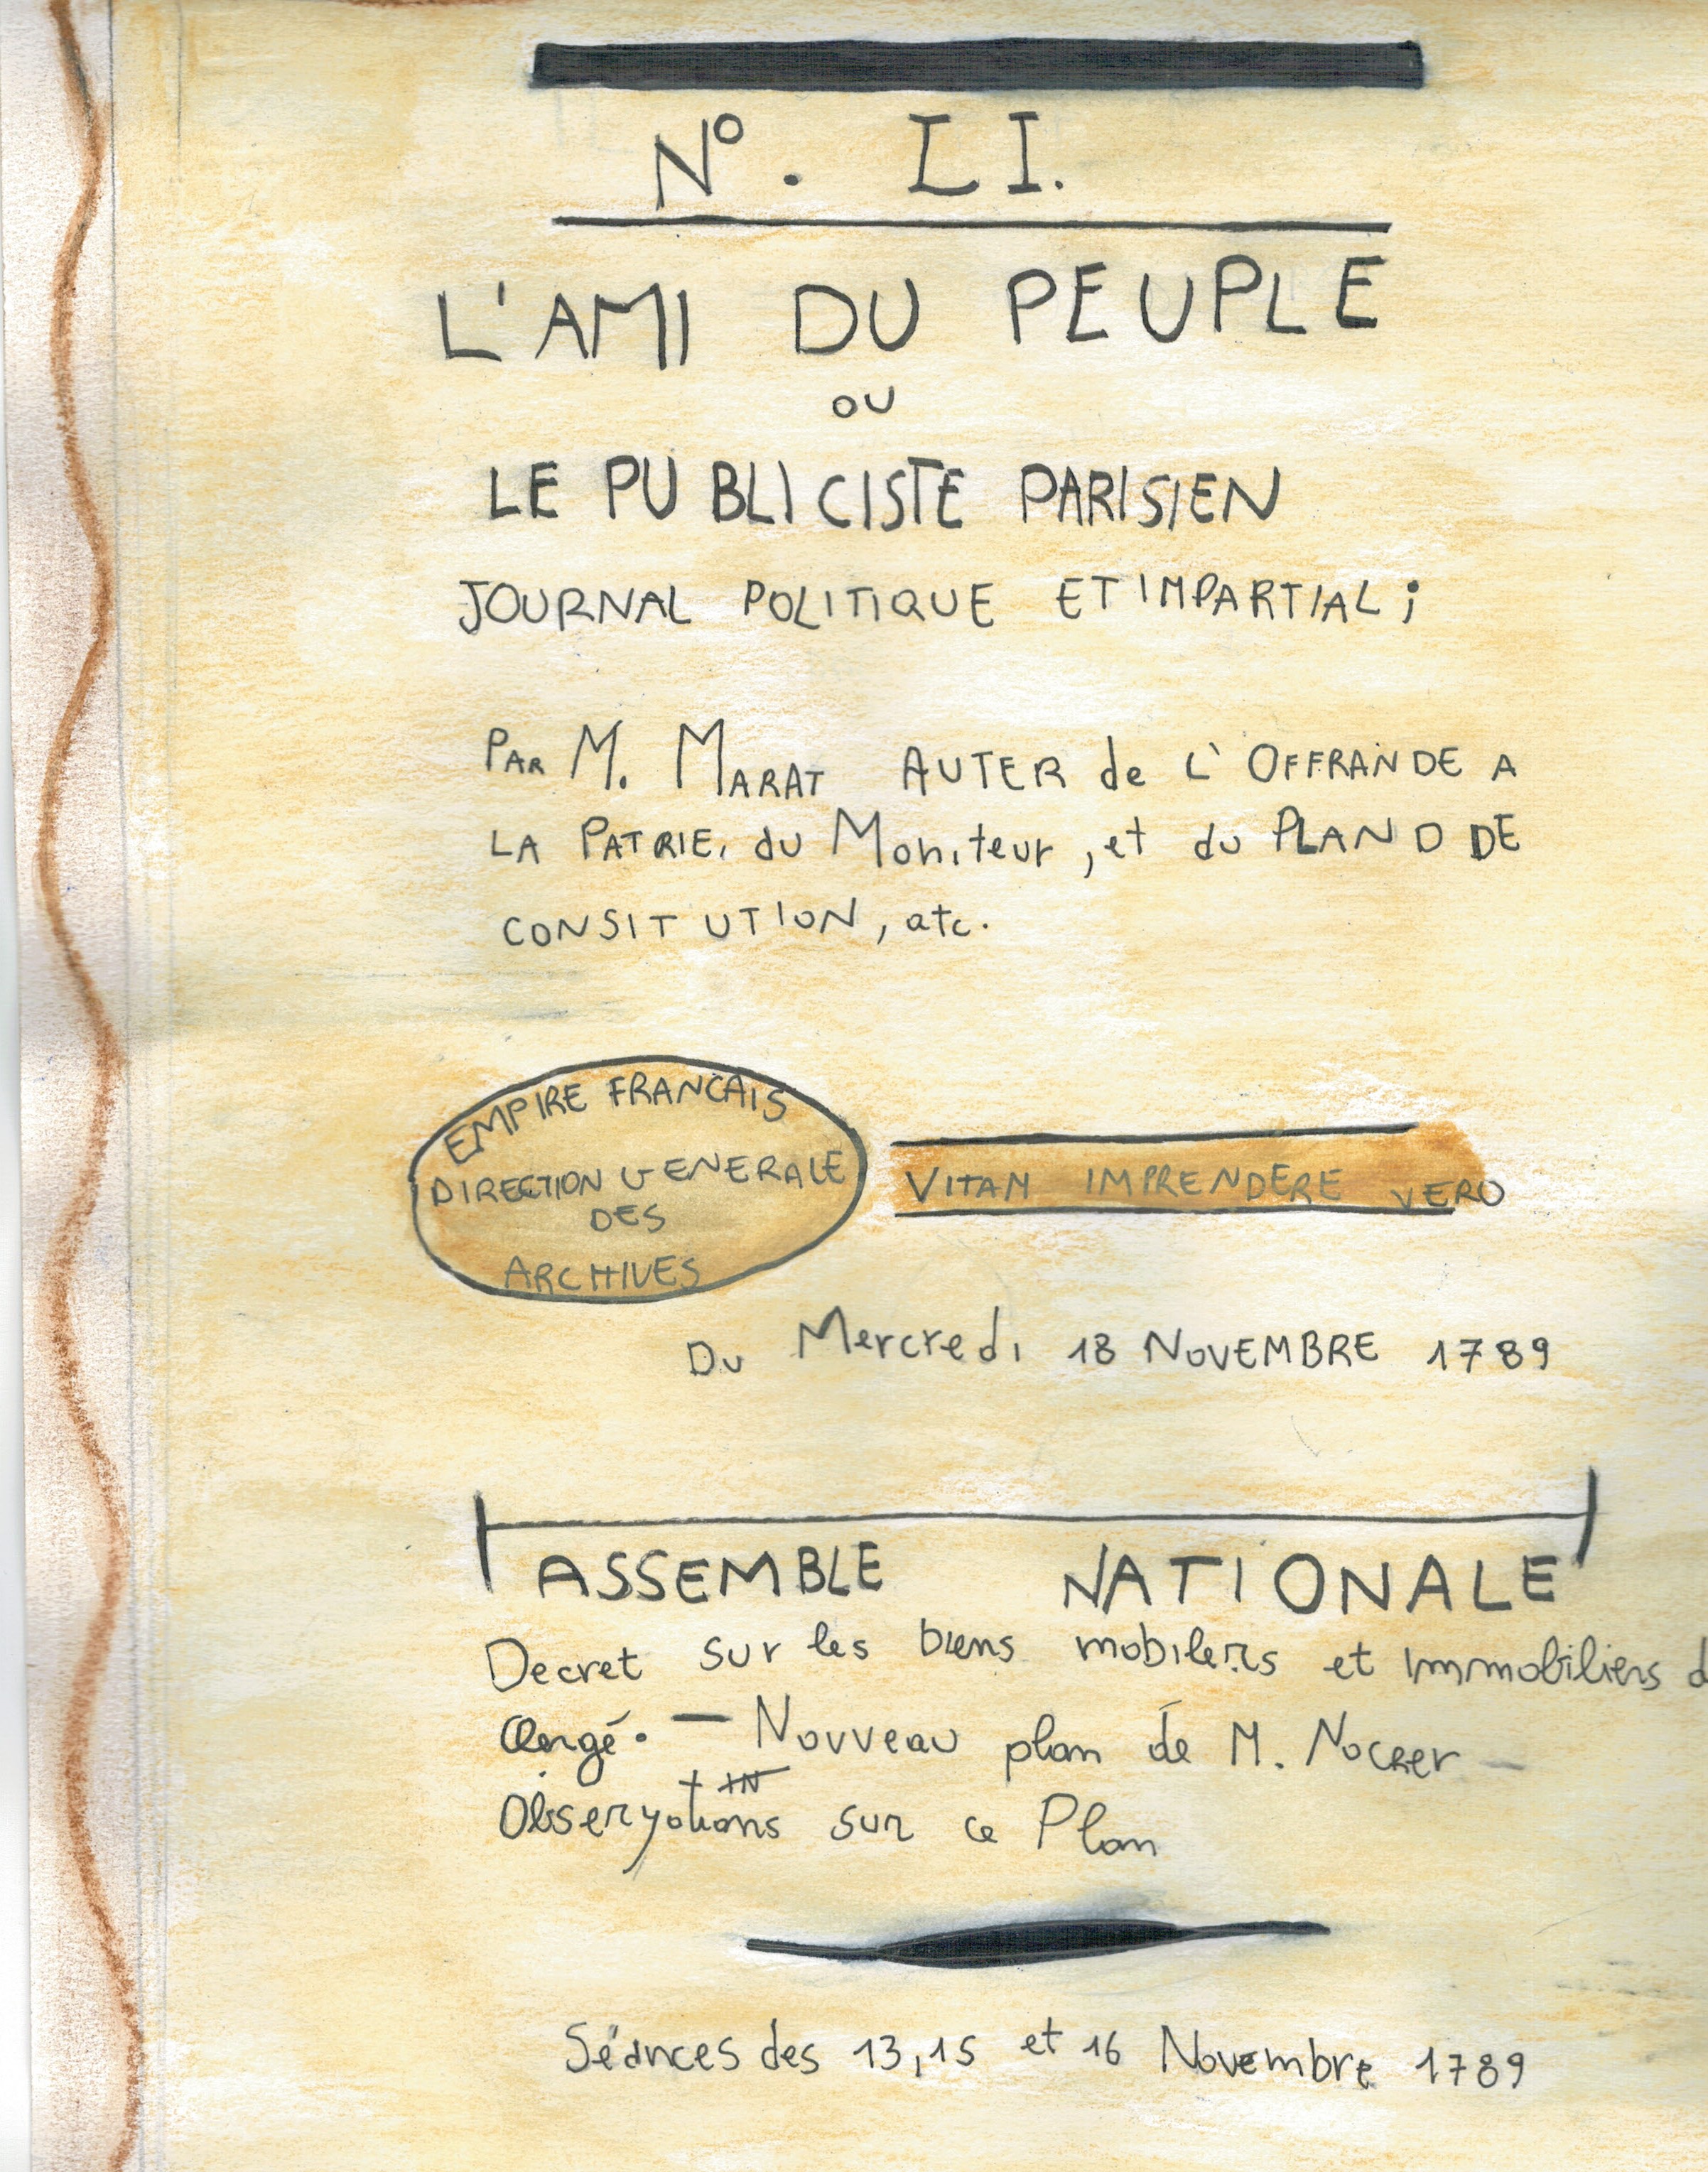 Nº. LI.
L'AMI DU PEUPLE
OU
LE PUBLICISTE PARISIEN
JOURNAL POLITIQUE ET IMPARTIAL;
PAR M. MARAT AUTER de L'OFFRANDE A
LA PATRIE, du Moniteur, et du PLAN D DE
CONSITUTION, atc.
EMPIRE FRANCAIS
DIRECTION GENERALE
DES
ARCHIVES
VITAM IMPRENDERE VERO
DU Mercredi 18 NOVEMBRE 1789
ASSEMBLE NATIONALE
Decret sur les biens mobilers et Immobiliers d
Clergé. — Nouveau plan de M. Nocker —
Observations sur ce Plan
Séances des 13, 15 et 16 Novembre 1789